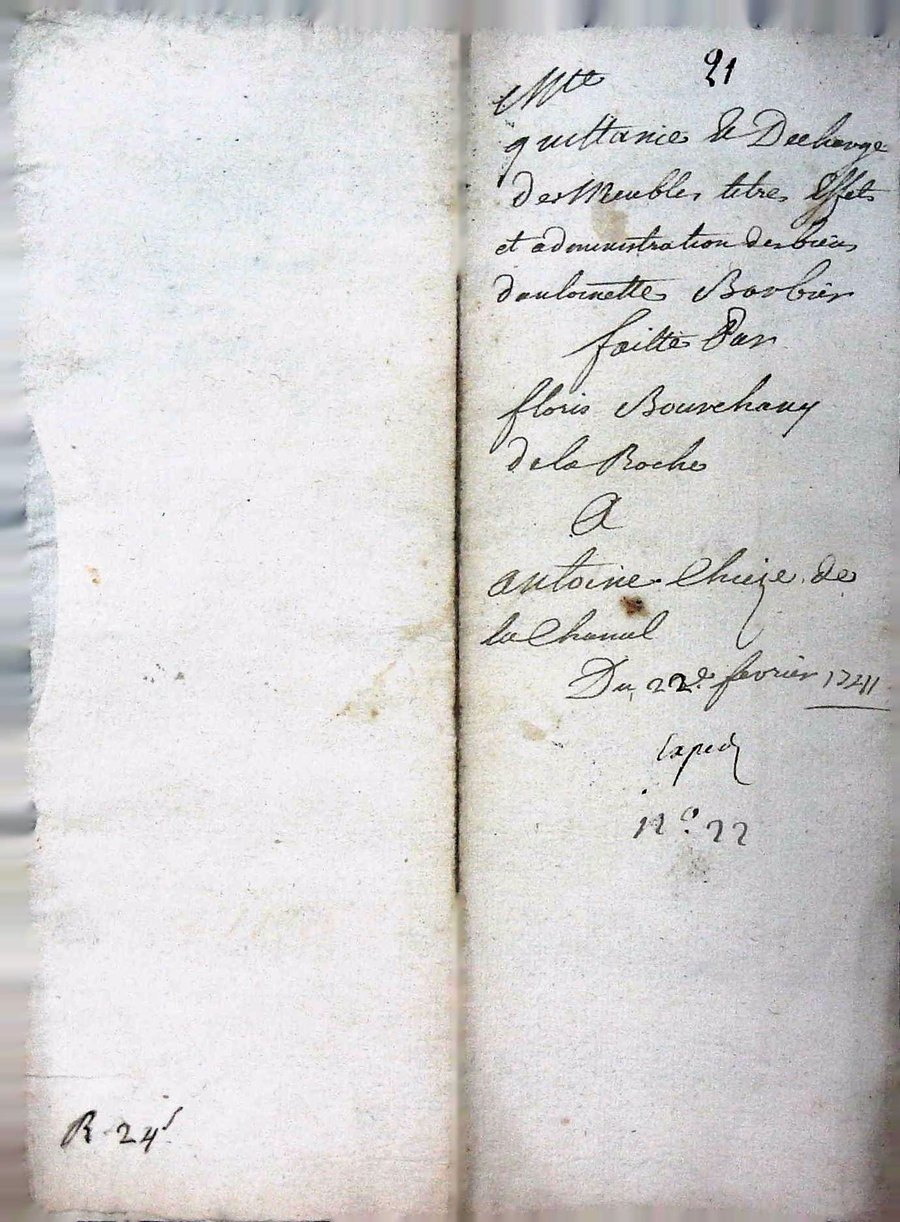 21
quittance & Decharge
des Meubles titres Effets
et administration des biens
dantoinette Barbier
faitte Par
floris Bourchany
de la Roche
A
antoine Chieze de
la Chanal
Du 22e fevrier 1741
Exped
n° 22
R 24s